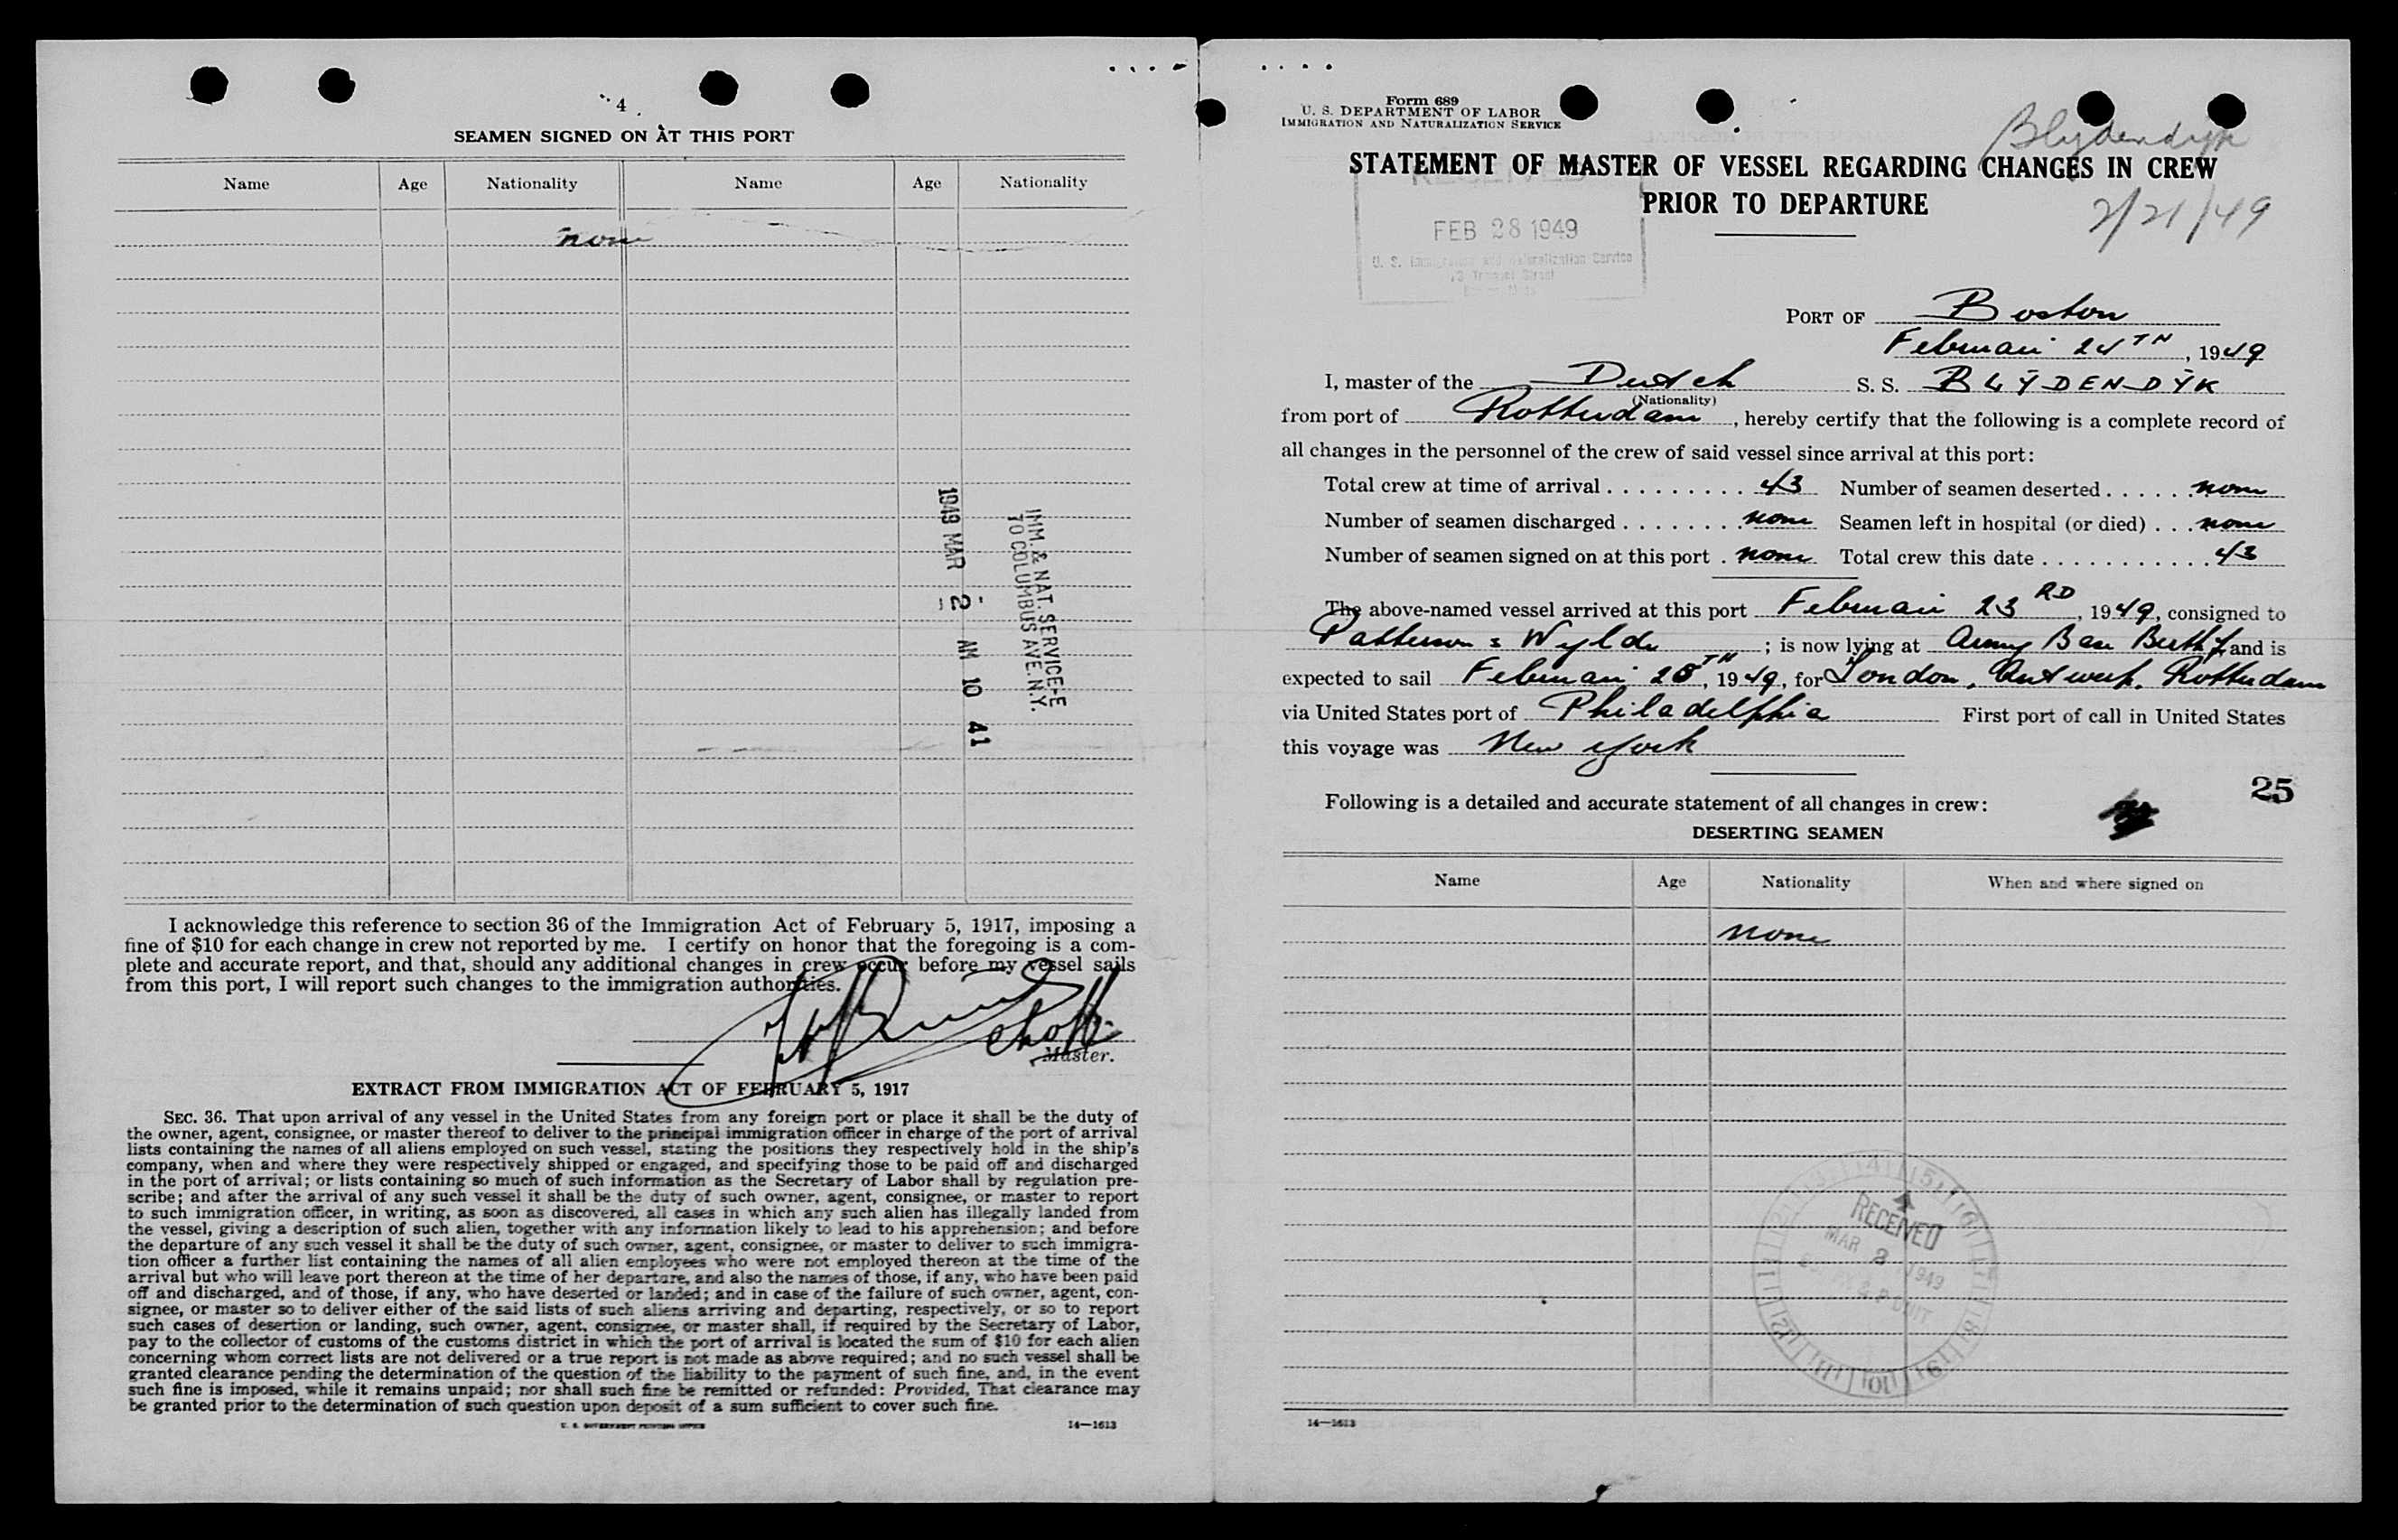 4
SEAMEN SIGNED ON AT THIS PORT
Name Age Nationality Name Age Nationality
none
IMM. & NAT. SERVICE-E
TO COLUMBUS AVE. N.Y.
1949 MAR - 2 AM 10 41
I acknowledge this reference to section 36 of the Immigration Act of February 5, 1917, imposing a
fine of $10 for each change in crew not reported by me. I certify on honor that the foregoing is a com-
plete and accurate report, and that, should any additional changes in crew occur before my vessel sails
from this port, I will report such changes to the immigration authorities.
Master.
EXTRACT FROM IMMIGRATION ACT OF FEBRUARY 5, 1917
SEC. 36. That upon arrival of any vessel in the United States from any foreign port or place it shall be the duty of
the owner, agent, consignee, or master thereof to deliver to the principal immigration officer in charge of the port of arrival
lists containing the names of all aliens employed on such vessel, stating the positions they respectively hold in the ship's
company, when and where they were respectively shipped or engaged, and specifying those to be paid off and discharged
in the port of arrival; or lists containing so much of such information as the Secretary of Labor shall by regulation pre-
scribe; and after the arrival of any such vessel it shall be the duty of such owner, agent, consignee, or master to report
to such immigration officer, in writing, as soon as discovered, all cases in which any such alien has illegally landed from
the vessel, giving a description of such alien, together with any information likely to lead to his apprehension; and before
the departure of any such vessel it shall be the duty of such owner, agent, consignee, or master to deliver to such immigra-
tion officer a further list containing the names of all alien employees who were not employed thereon at the time of the
arrival but who will leave port thereon at the time of her departure, and also the names of those, if any, who have been paid
off and discharged, and of those, if any, who have deserted or landed; and in case of the failure of such owner, agent, con-
signee, or master so to deliver either of the said lists of such aliens arriving and departing, respectively, or so to report
such cases of desertion or landing, such owner, agent, consignee, or master shall, if required by the Secretary of Labor,
pay to the collector of customs of the customs district in which the port of arrival is located the sum of $10 for each alien
concerning whom correct lists are not delivered or a true report is not made as above required; and no such vessel shall be
granted clearance pending the determination of the question of the liability to the payment of such fine, and, in the event
such fine is imposed, while it remains unpaid; nor shall such fine be remitted or refunded: Provided, That clearance may
be granted prior to the determination of such question upon deposit of a sum sufficient to cover such fine.
U. S. GOVERNMENT PRINTING OFFICE 14—1613
Form 689
U. S. DEPARTMENT OF LABOR
IMMIGRATION AND NATURALIZATION SERVICE
Blydendyk
STATEMENT OF MASTER OF VESSEL REGARDING CHANGES IN CREW
PRIOR TO DEPARTURE
2/21/49
RECEIVED
FEB 28 1949
U. S. Immigration and Naturalization Service
PORT OF Boston
Februari 24TH, 1949
I, master of the Dutch S. S. BLŸDENDŸK
(Nationality)
from port of Rotterdam, hereby certify that the following is a complete record of
all changes in the personnel of the crew of said vessel since arrival at this port:
Total crew at time of arrival . . . . . . . . . 43 Number of seamen deserted . . . . . . none
Number of seamen discharged . . . . . . . none Seamen left in hospital (or died) . . . none
Number of seamen signed on at this port . none Total crew this date . . . . . . . . . . . 43
The above-named vessel arrived at this port Februari 23RD, 1949, consigned to
Patterson & Wylde; is now lying at Army Base Berth and is
expected to sail Februari 25TH, 1949, for London, Antwerp, Rotterdam
via United States port of Philadelphia First port of call in United States
this voyage was New York
25
Following is a detailed and accurate statement of all changes in crew:
DESERTING SEAMEN
Name Age Nationality When and where signed on
none
RECEIVED
MAR 3 1949
14—1613